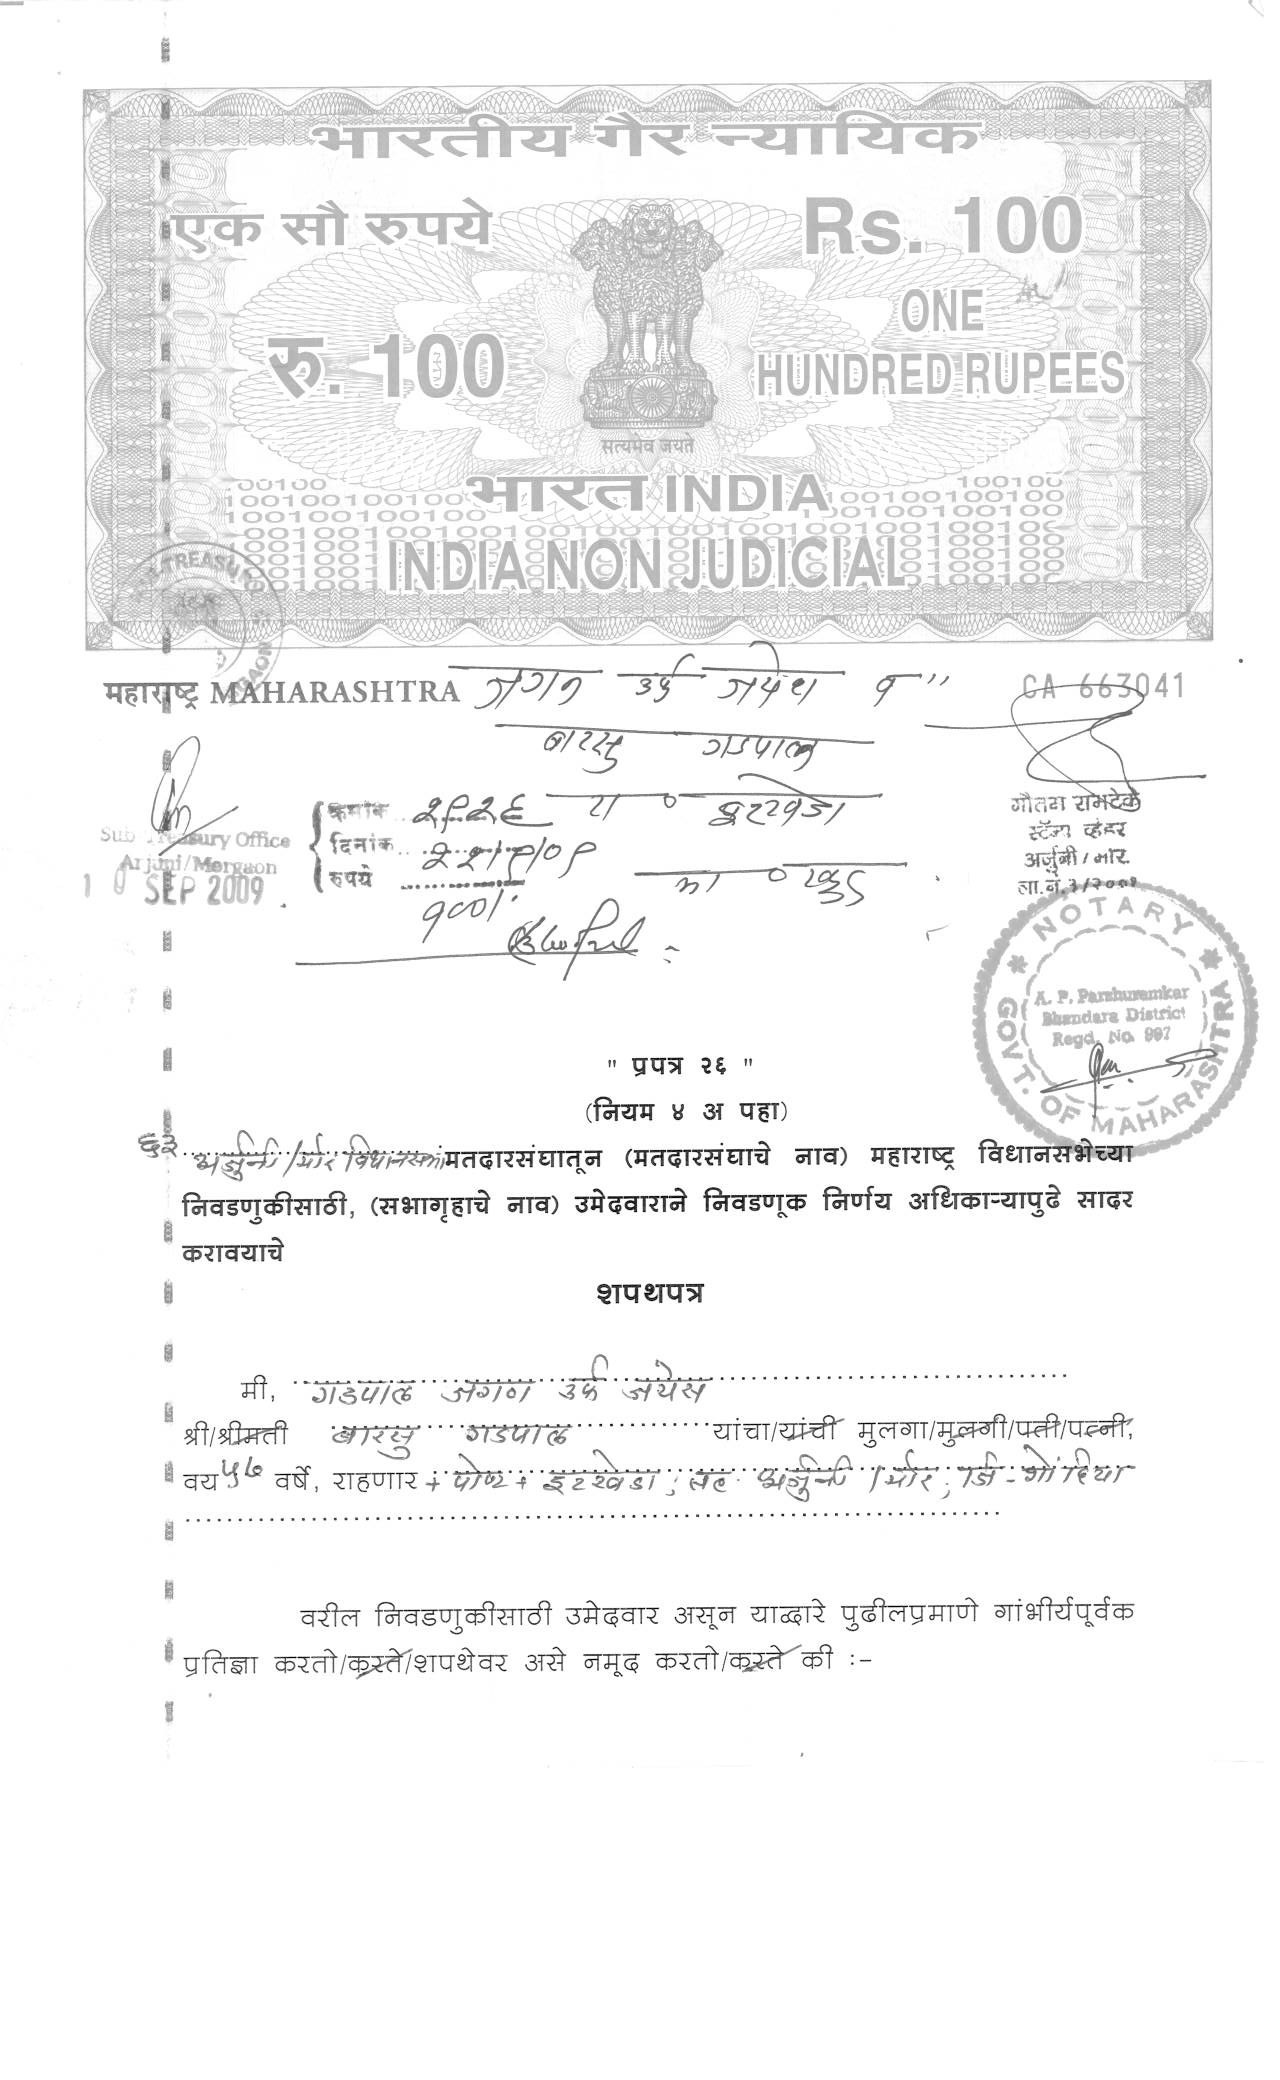 भारतीय गैर न्यायिक
एक सौ रुपये
Rs. 100
रु. 100
ONE
HUNDRED RUPEES
सत्यमेव जयते
भारत INDIA
INDIA NON JUDICIAL
महाराष्ट्र MAHARASHTRA
CA 663041
जगन उर्फ जयेश व"
बारसु गडपाल
क्रमांक २९२६
रा ० इटखेडा
दिनांक २२/९/०९
रुपये
१००/-
Sub Treasury Office
Arjuni/Morgaon
10 SEP 2009
गौतम रामटेके
स्टॅम्प व्हेंडर
अर्जुनी / मोर.
ला.नं. ३/२००१
NOTARY
GOVT. OF MAHARASHTRA
A. P. Parshuramkar
Bhandara District
Regd. No. 997
" प्रपत्र २६ "
(नियम ४ अ पहा)
६३ अर्जुनी/मोर विधानसभा मतदारसंघातून (मतदारसंघाचे नाव) महाराष्ट्र विधानसभेच्या
निवडणुकीसाठी, (सभागृहाचे नाव) उमेदवाराने निवडणूक निर्णय अधिकाऱ्यापुढे सादर
करावयाचे
शपथपत्र
मी, गडपाल जगन उर्फ जयेस
श्री/श्रीमती बारसु गडपाल यांचा/यांची मुलगा/मुलगी/पती/पत्नी,
वय ५७ वर्षे, राहणार + पोष्ट + इटखेडा, तह. अर्जुनी/मोर, जि-गोंदिया
वरील निवडणुकीसाठी उमेदवार असून याद्वारे पुढीलप्रमाणे गांभीर्यपूर्वक
प्रतिज्ञा करतो/करते/शपथेवर असे नमूद करतो/करते की :-